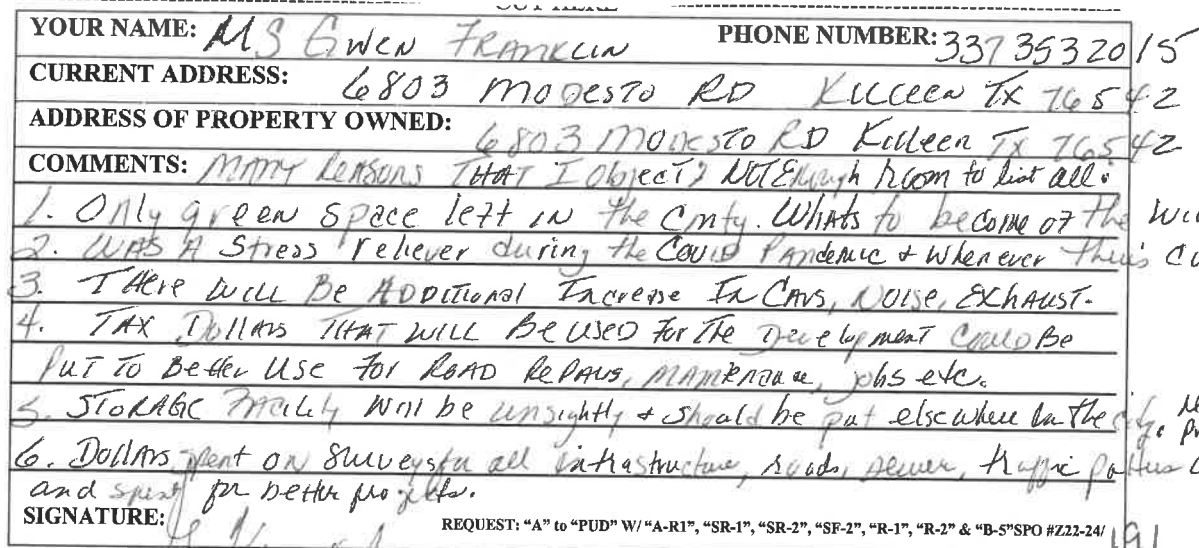 CUT HERE
YOUR NAME: MS GWEN FRANKLIN PHONE NUMBER: 3373532015
CURRENT ADDRESS: 6803 MODESTO RD KILLEEN TX 76542
ADDRESS OF PROPERTY OWNED: 6803 MODESTO RD Killeen TX 76542
COMMENTS: MANY Reasons THAT I Object? NOT Enough room to list all.
1. Only green space left in the Cmty. Whats to become of the
2. WAS A Stress reliever during the Covid Pandemic + whenever
3. THere will Be ADDitional Increase In Cars, Noise, EXHAUST.
4. TAX Dollars THAT WILL Be used For The Development Could Be
Put To Better Use for ROAD Repairs, maintenance, jobs etc.
5. STORAGE Facility Will be unsightly + should be put elsewhere in the city.
6. Dollars spent on surveys for all infrastructure, roads, sewer, traffic
and spent for better projects.
SIGNATURE: REQUEST: "A" to "PUD" W/ "A-R1", "SR-1", "SR-2", "SF-2", "R-1", "R-2" & "B-5"SPO #Z22-24/ 191